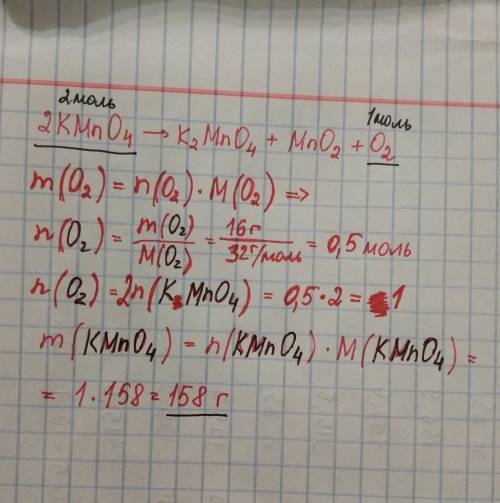 2моль 1моль
2KMnO₄ → K₂MnO₄ + MnO₂ + O₂
m(O₂) = n(O₂) · M(O₂) =>
n(O₂) = m(O₂)/M(O₂) = 16г/32г/моль = 0,5 моль
n(O₂) = 2n(KMnO₄) = 0,5·2 = 1
m(KMnO₄) = n(KMnO₄) · M(KMnO₄) =
= 1·158 = 158 г